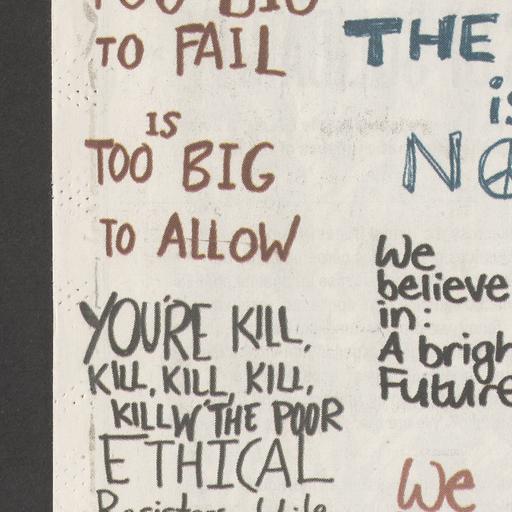 TOO BIG
TO FAIL
IS
TOO BIG
TO ALLOW
YOU'RE KILL,
KILL, KILL, KILL,
KILLW' THE POOR
ETHICAL
THE
is
We
believe
in:
A brigh
Future
We